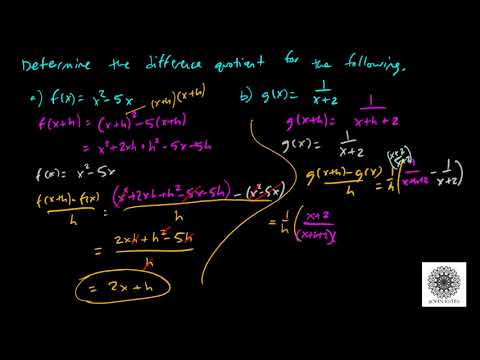 Determine the difference quotient for the following.
a) f(x) = x² - 5x
(x+h)(x+h)
f(x+h) = (x+h)² - 5(x+h)
= x² + 2xh + h² - 5x - 5h
f(x) = x² - 5x
(f(x+h) - f(x))/h = ((x² + 2xh + h² - 5x - 5h) - (x² - 5x))/h
= (2xh + h² - 5h)/h
= 2x + h
b) g(x) = 1/(x+2)
g(x+h) = 1/(x+h+2)
g(x) = 1/(x+2)
(g(x+h) - g(x))/h = 1/h ( (x+2)/(x+2) 1/(x+h+2) - 1/(x+2) )
= 1/h ( (x+2)/((x+h+2)(